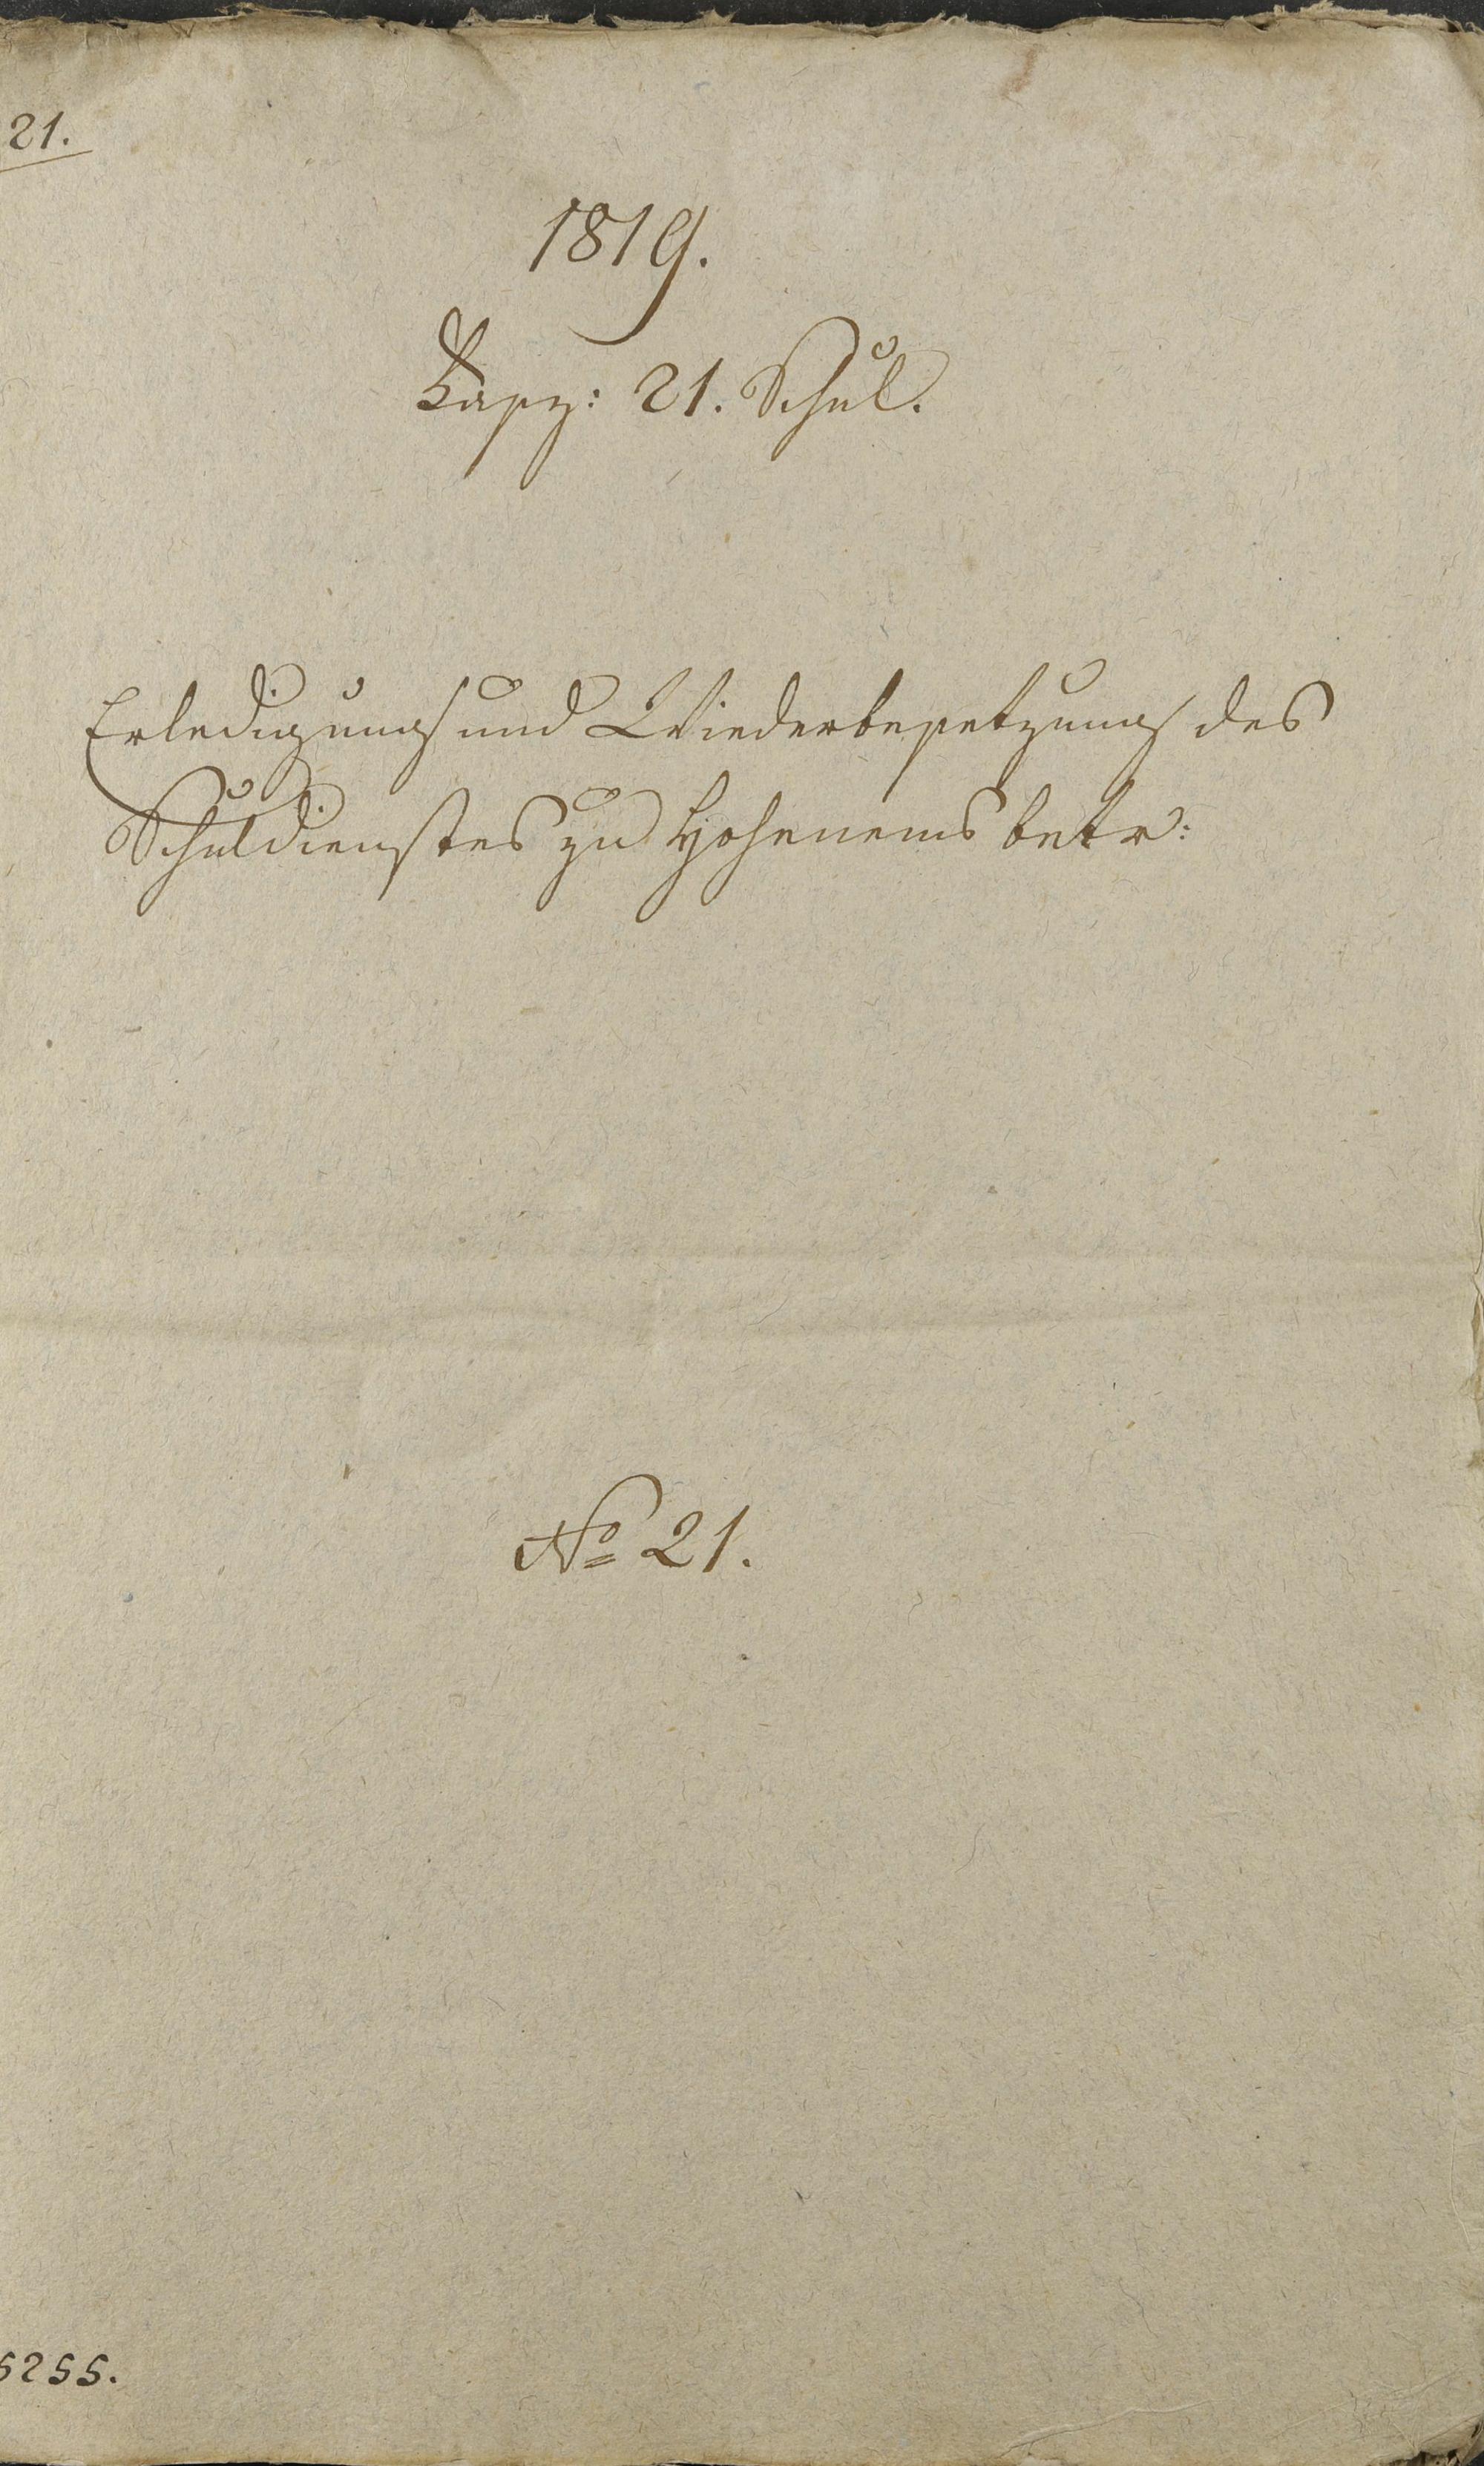 21.
1819.
Fasz: 21. Schul.
Erledigung und Wiederbesetzung des
Schuldienstes zu Hohenems betr:
No 21.
5255.